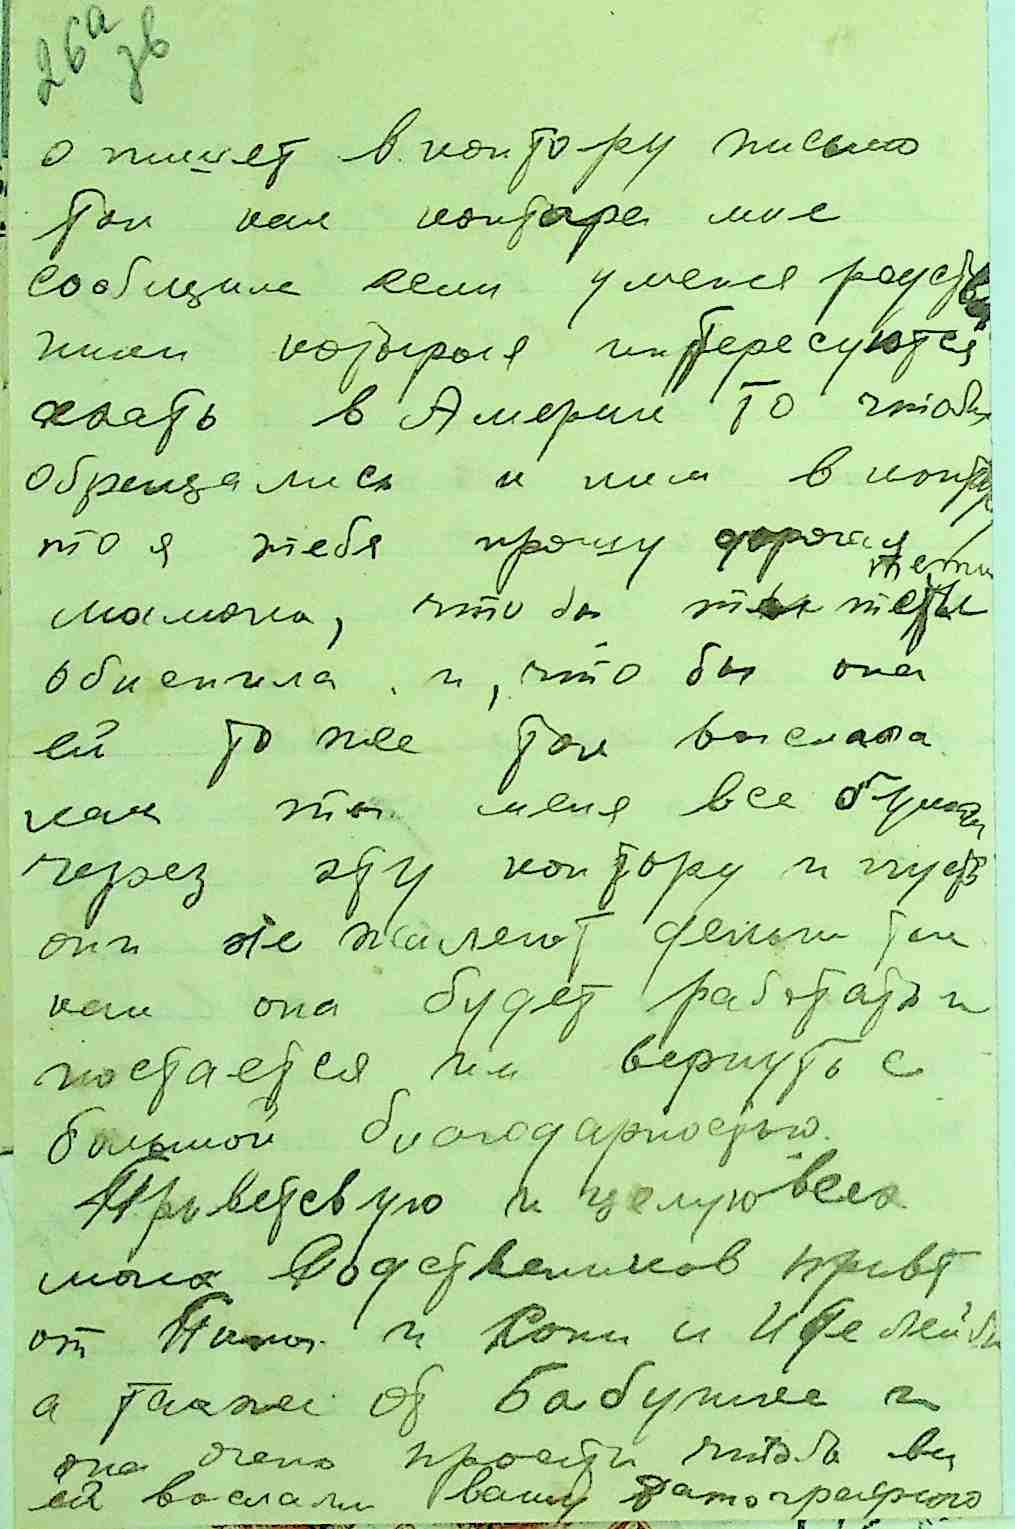 26а
зв
о пишет в контору письмо
так как контора мне
сообщила если у меня родств
ники которые интересуются
ехать в Америки то чтобы
обрещались к ним в контор
то я тебя прошу дорогая
тети
мамочка, что бы ты тети
обиснила и, что бы она
ей то же так выслала
как ты меня все бумаги
через эту контору и пусть
они не жалеют деньги так
как она будет работать и
постается им вернуть с
большой благодарностью.
Приветсвую и целую всех
моих Родствеников привт
от Папы и Сони и
а также от Бабушке и
она очень просить чтобы вы
ей выслали вашу фатографию